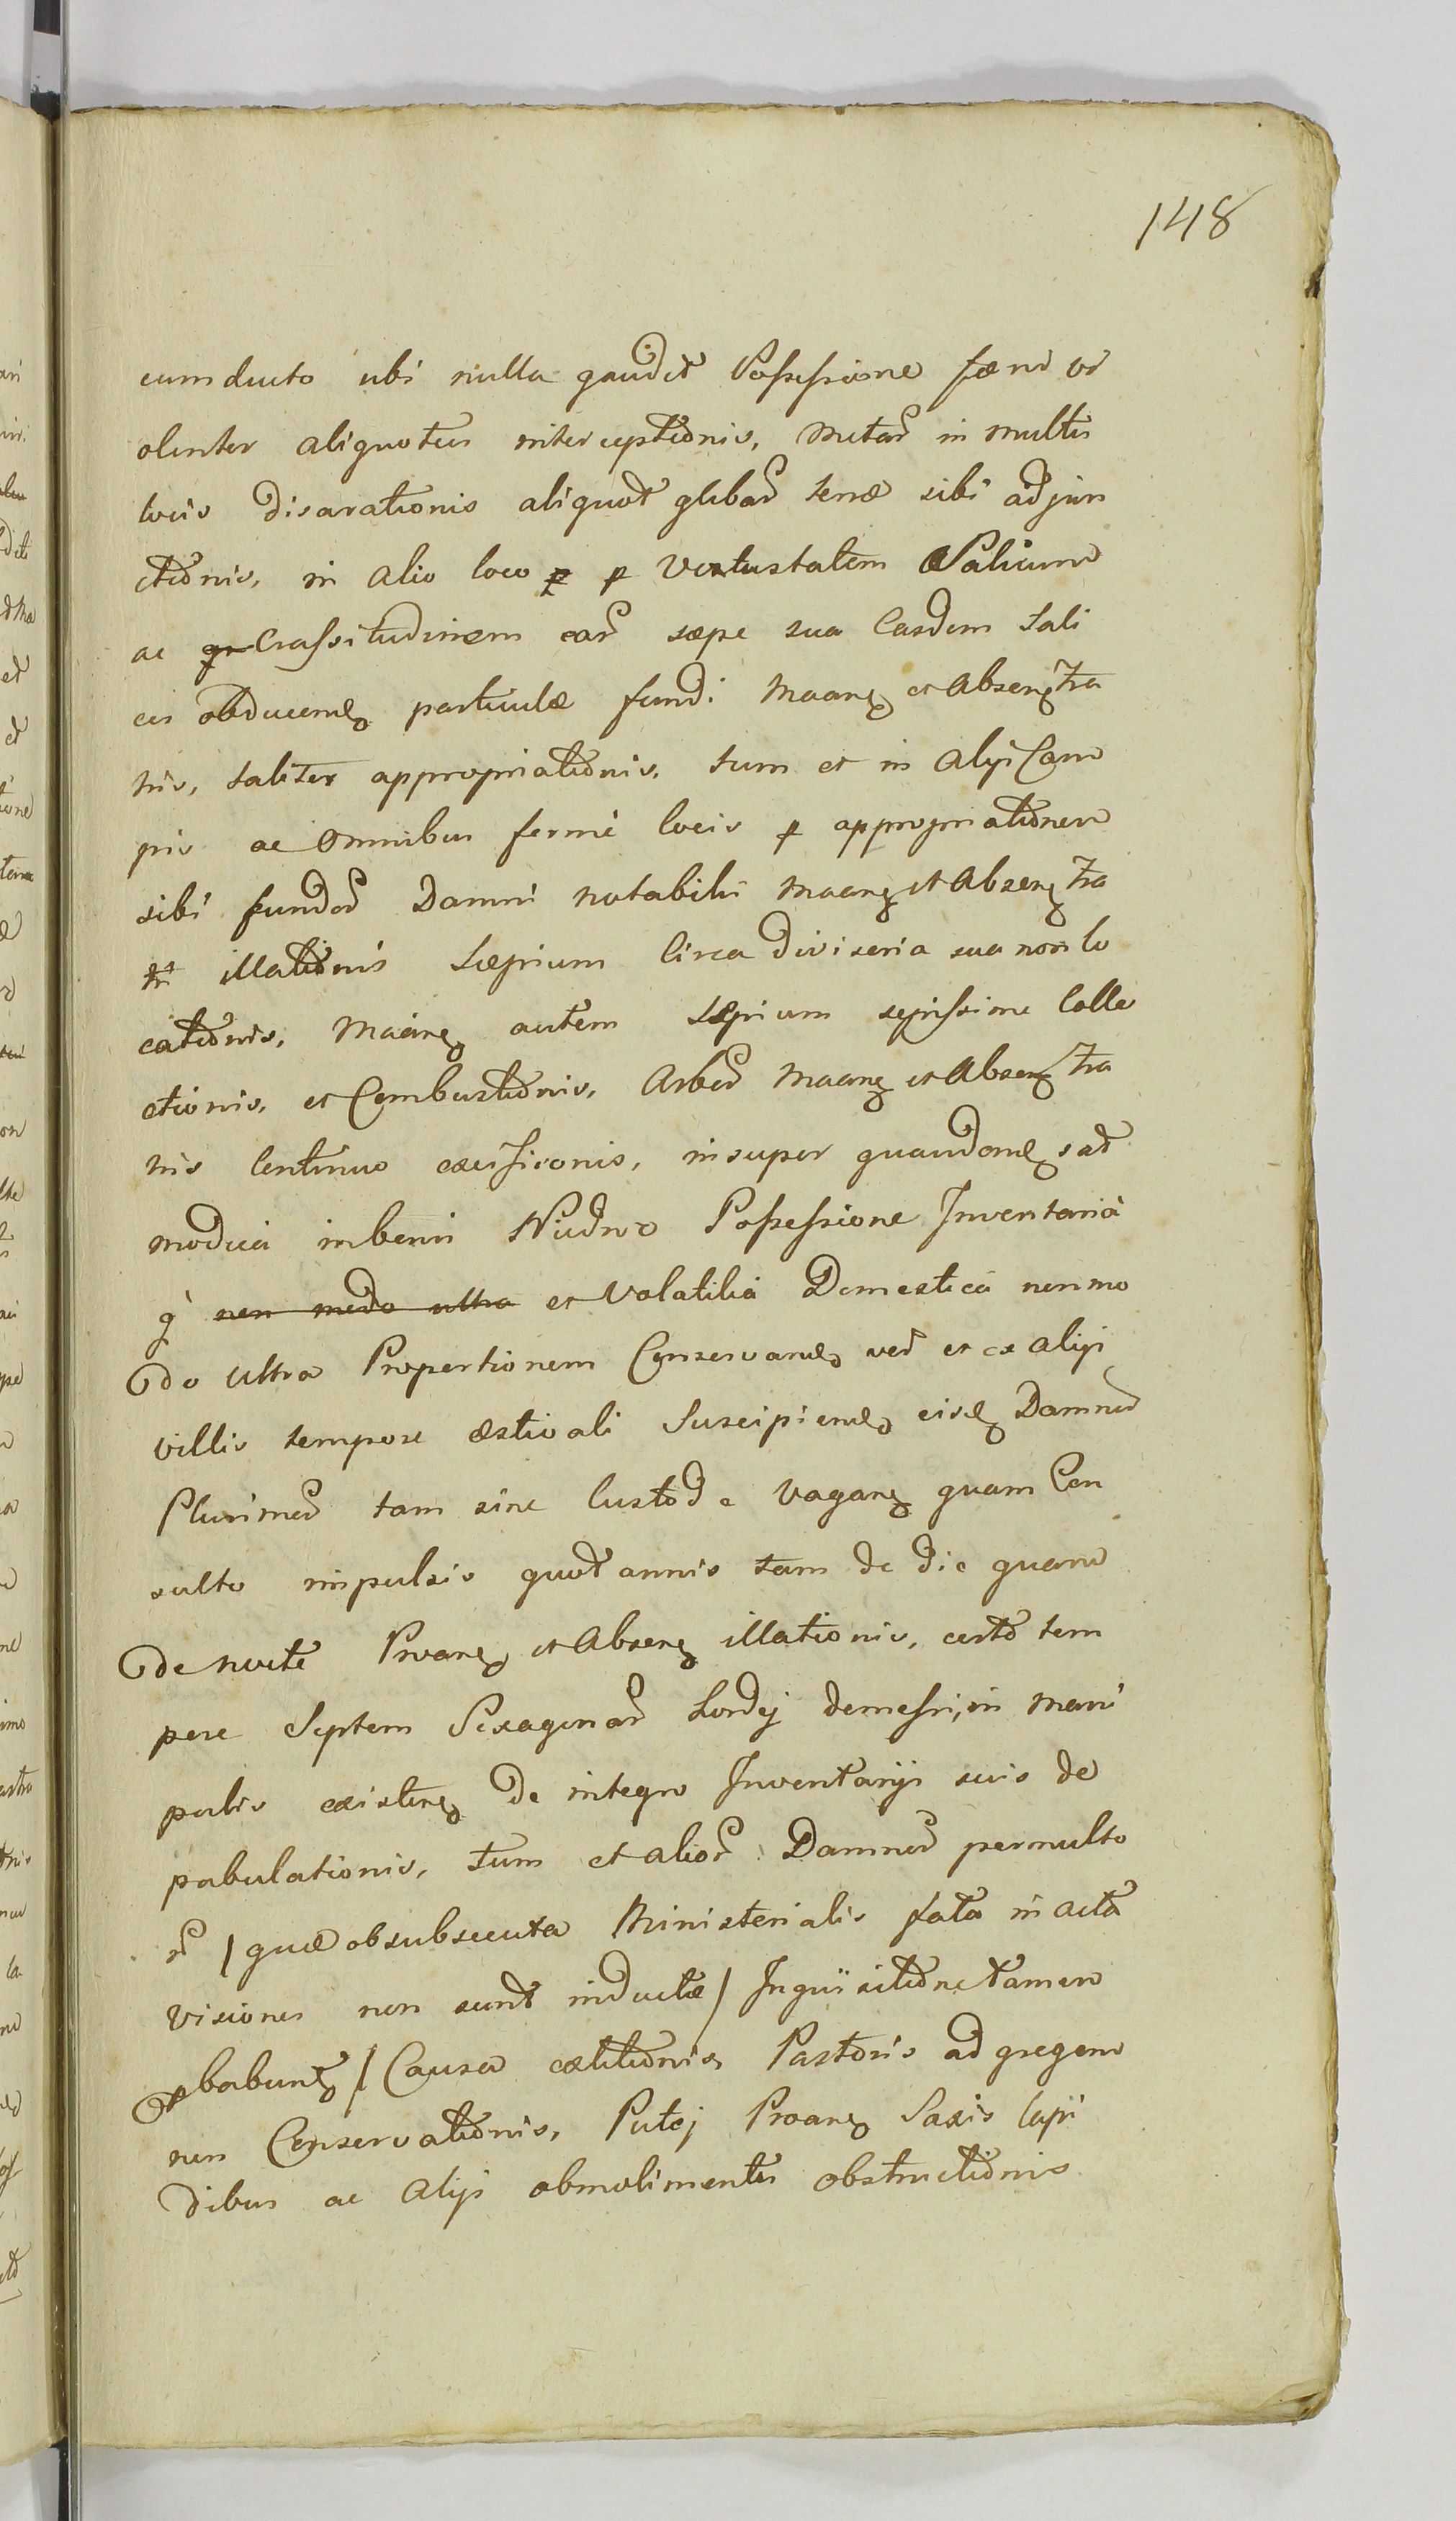 148
cumducto ubi nulla gaudet Possessione fœni vi
olenter aliquoties interceptionis, metar in multis
locis disarationis aliquot glebar terræ sibi adjun
ctionis, in alio loco p vetustatem Salicum
ac Crassitudinem ear sæpe sua Easdem Sali
ces obducend particulæ fundi maanq et Absenq tra
nis, taliter appropriationis, tum et in alijs Cam
pis ac omnibus fermè locis p appropriationem
sibi fundor Damni notabilis maanq et Absenq tra
illationis Sæpium Circa diviseria sua non lo
cationis, maanq autem Sæpium sepissime Colle
ctionis, et Combustionis, Arbor maanq et Absenq tra
nis Continuo excisionis, insuper quaudend sad
modica in bonis Possessione Inventaria
q non modo ultra et Volatilia Domestica non mo
do ultra Proportionem Conservand ver et ex alijs
villis tempore æstivali Suscipiend eisq Damnor
Plurimor tam sine Custode vaganq quam Con
sulto impulsis quotannis tam de die quam
de nocte Proanq et Absenq illationis, certo tem
pore Septem Sexagenar hordej demessi, in mani
pulis existenq de integro Inventarijs suis de
pabulationis, tum et alior Damnor permulto
r / quæ ob subsecuta Ministerialis fata in acta
visiones non sunt inductæ / Inquisitione tamen
pbabunq / Causa Pastoris ad gregem
non Conservationis, Putej Proanq Saxis lapi
dibus ac alijs obmolimentis obstructionis